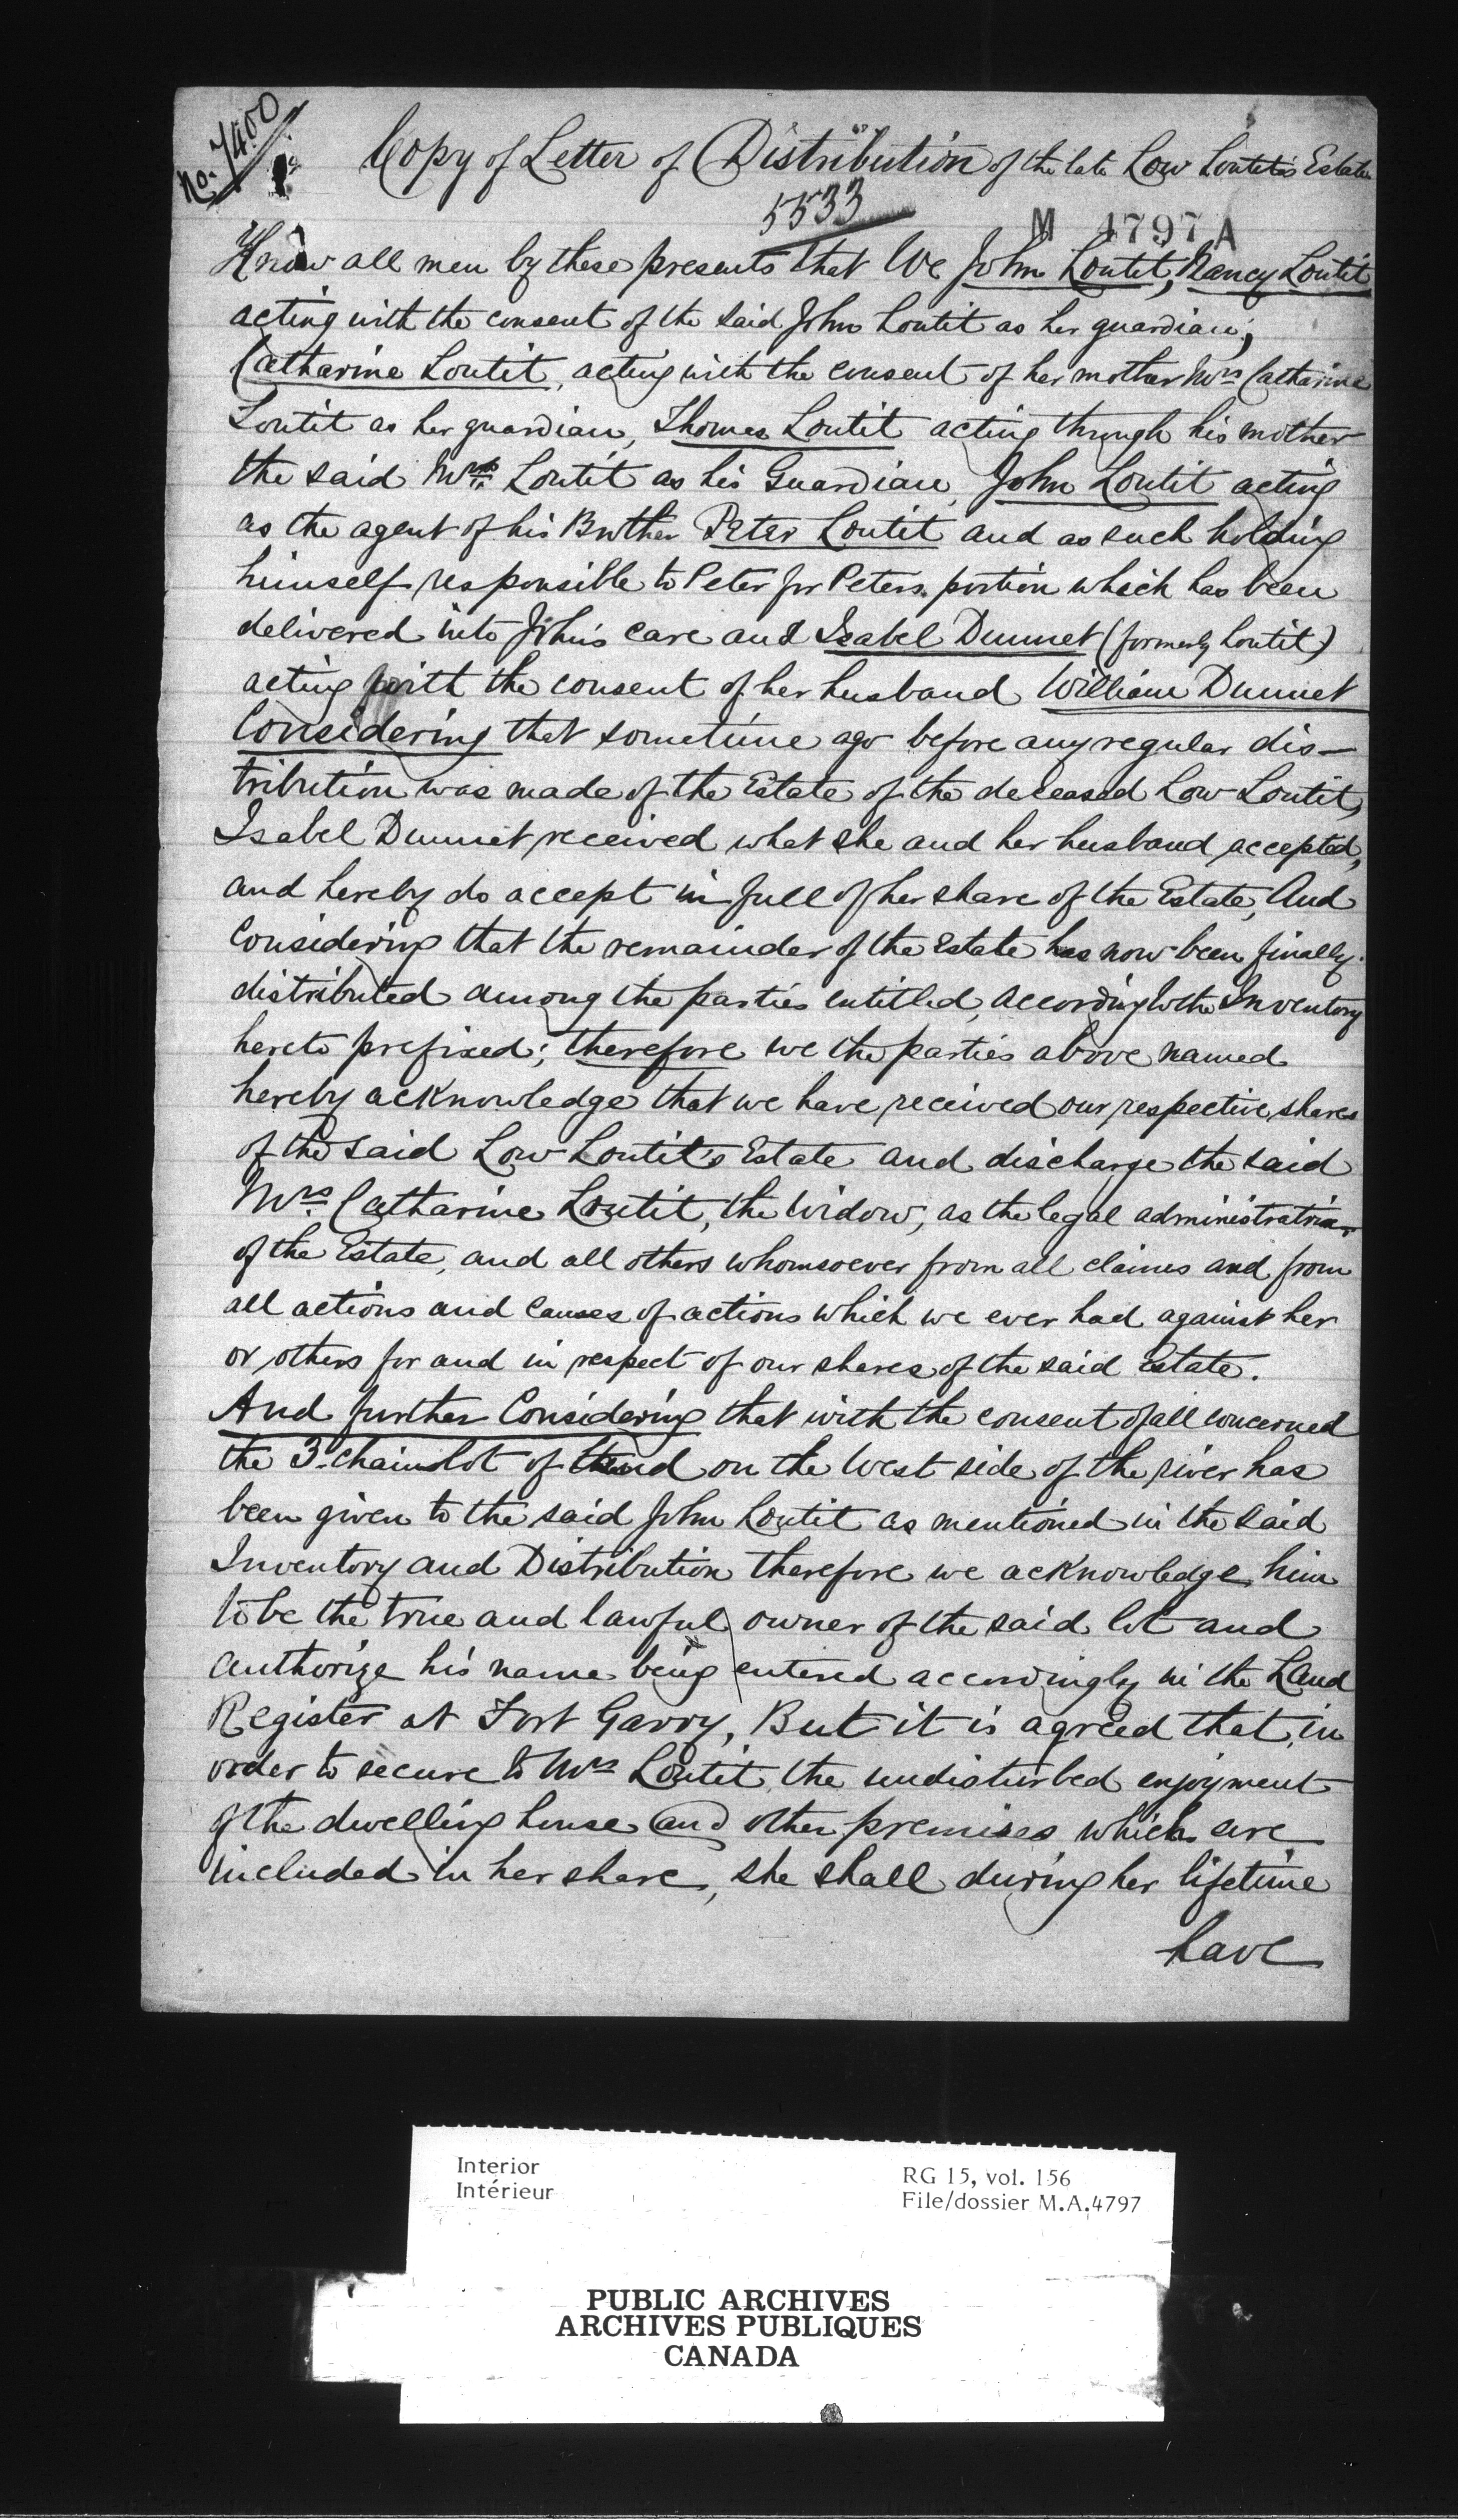 No. 7400
Copy of Letter of Distribution of the late Low Loutit's Estate
5533
M 4797 A
Know all men by these presents that We John Loutit, Nancy Loutit
acting with the consent of the said John Loutit as her guardian;
Catharine Loutit, acting with the consent of her mother Mrs Catharine
Loutit as her guardian, Thomas Loutit acting through his mother
the said Mrs. Loutit as his Guardian, John Loutit acting
as the agent of his Brother Peter Loutit and as such holding
himself responsible to Peter for Peters portion which has been
delivered into John's care and Isabel Dunnet (formerly Loutit)
acting with the consent of her husband William Dunnet
Considering that sometime ago before any regular dis-
tribution was made of the Estate of the deceased Low Loutit,
Isabel Dunnet received what she and her husband accepted,
and hereby do accept in full of her share of the Estate, And
Considering that the remainder of the Estate has now been finally
distributed among the parties entitled, according to the Inventory
hereto prefixed; therefore we the parties above named
hereby acknowledge that we have received our respective shares
of the said Low Loutit's Estate and discharge the said
Mrs. Catharine Loutit, the Widow, as the legal administratrix
of the Estate, and all others whomsoever from all claims and from
all actions and causes of actions which we ever had against her
or others for and in respect of our shares of the said Estate.
And further Considering that with the consent of all concerned
the 3 chain lot of land on the West side of the river has
been given to the said John Loutit as mentioned in the said
Inventory and Distribution therefore we acknowledge him
to be the true and lawful owner of the said lot and
authorize his name being entered accordingly in the Land
Register at Fort Garry, But it is agreed that, in
order to secure to Mrs Loutit, the undisturbed enjoyment
of the dwelling house and other premises which are
included in her share, she shall during her lifetime
have
Interior
Intérieur
RG 15, vol. 156
File/dossier M.A.4797
PUBLIC ARCHIVES
ARCHIVES PUBLIQUES
CANADA